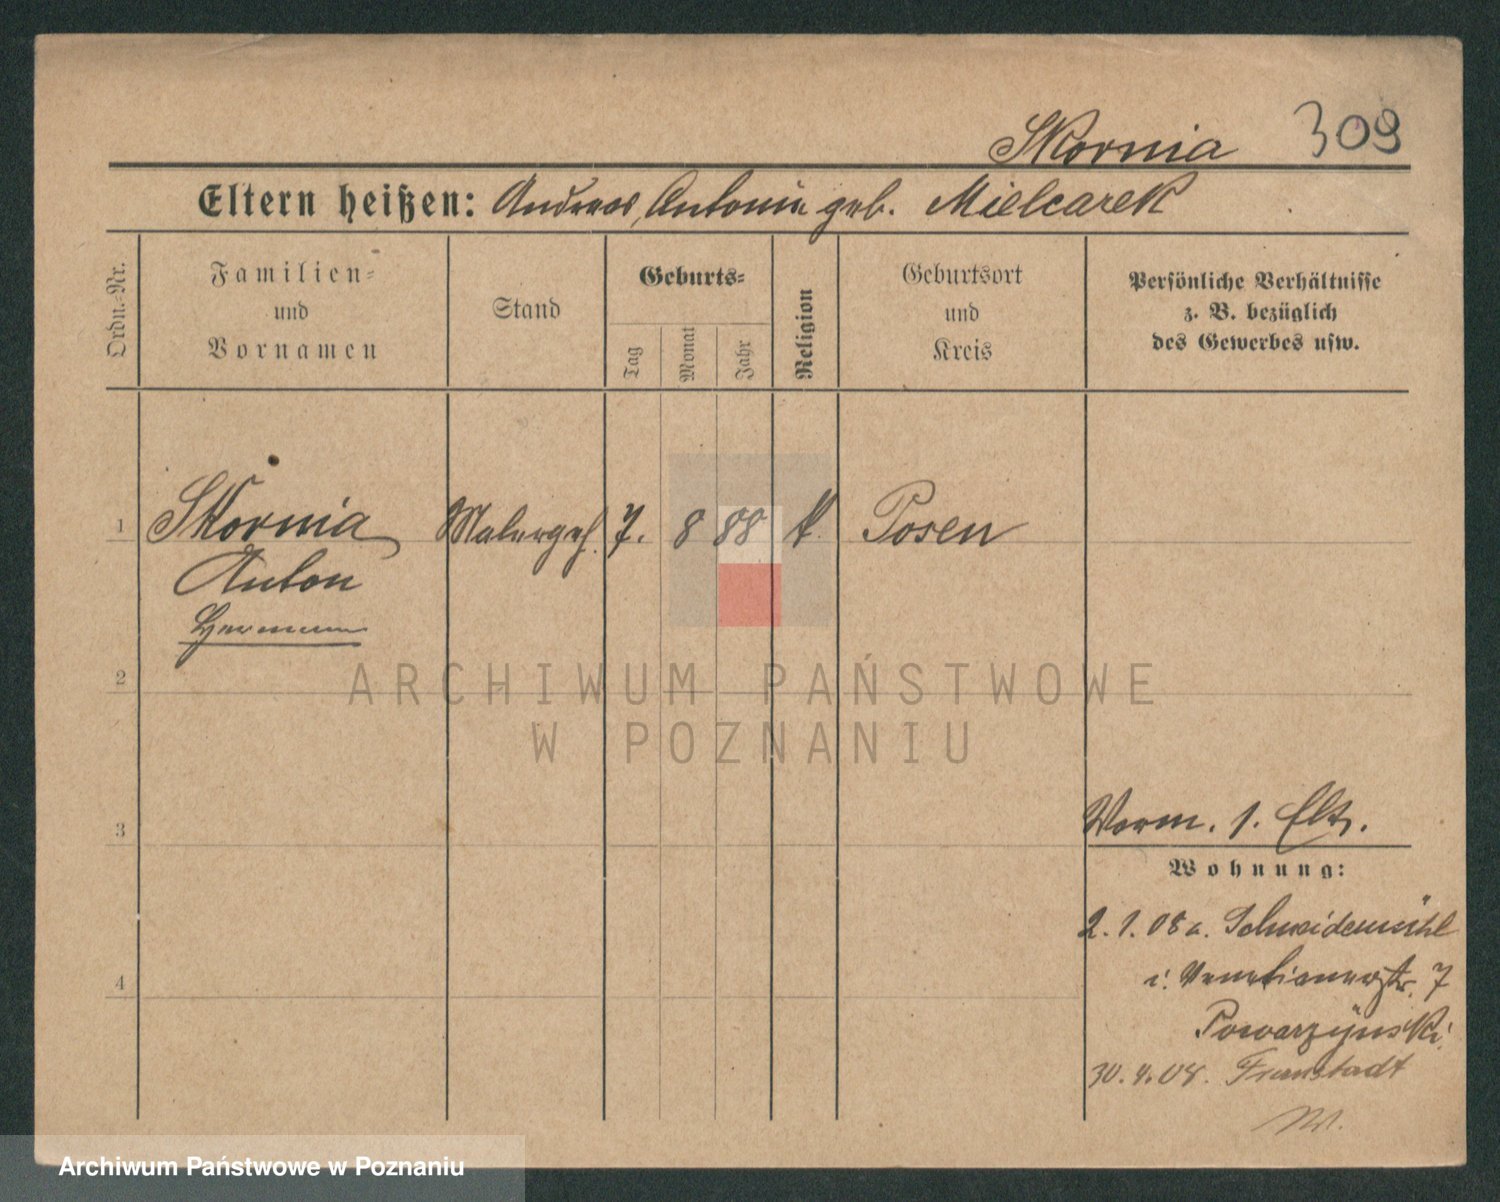 Skornia 309
Eltern heißen: Andreas, Antonie geb. Mielcarek
Ordn.-Nr.
Familien-
und
Vornamen
Stand
Geburts-
Tag
Monat
Jahr
Religion
Geburtsort
und
Kreis
Persönliche Verhältnisse
z. B. bezüglich
des Gewerbes usw.
1 Skornia Malergeh. 7. 8 88 k. Posen
Anton
Hermann
2
ARCHIWUM PAŃSTWOWE
W POZNANIU
3
Worm. s. Elt.
Wohnung:
2. 1. 08 a. Schneidemühl
i. Venetianerstr. 7
Powarzynski
30. 4. 08. Fraustadt
4
Archiwum Państwowe w Poznaniu